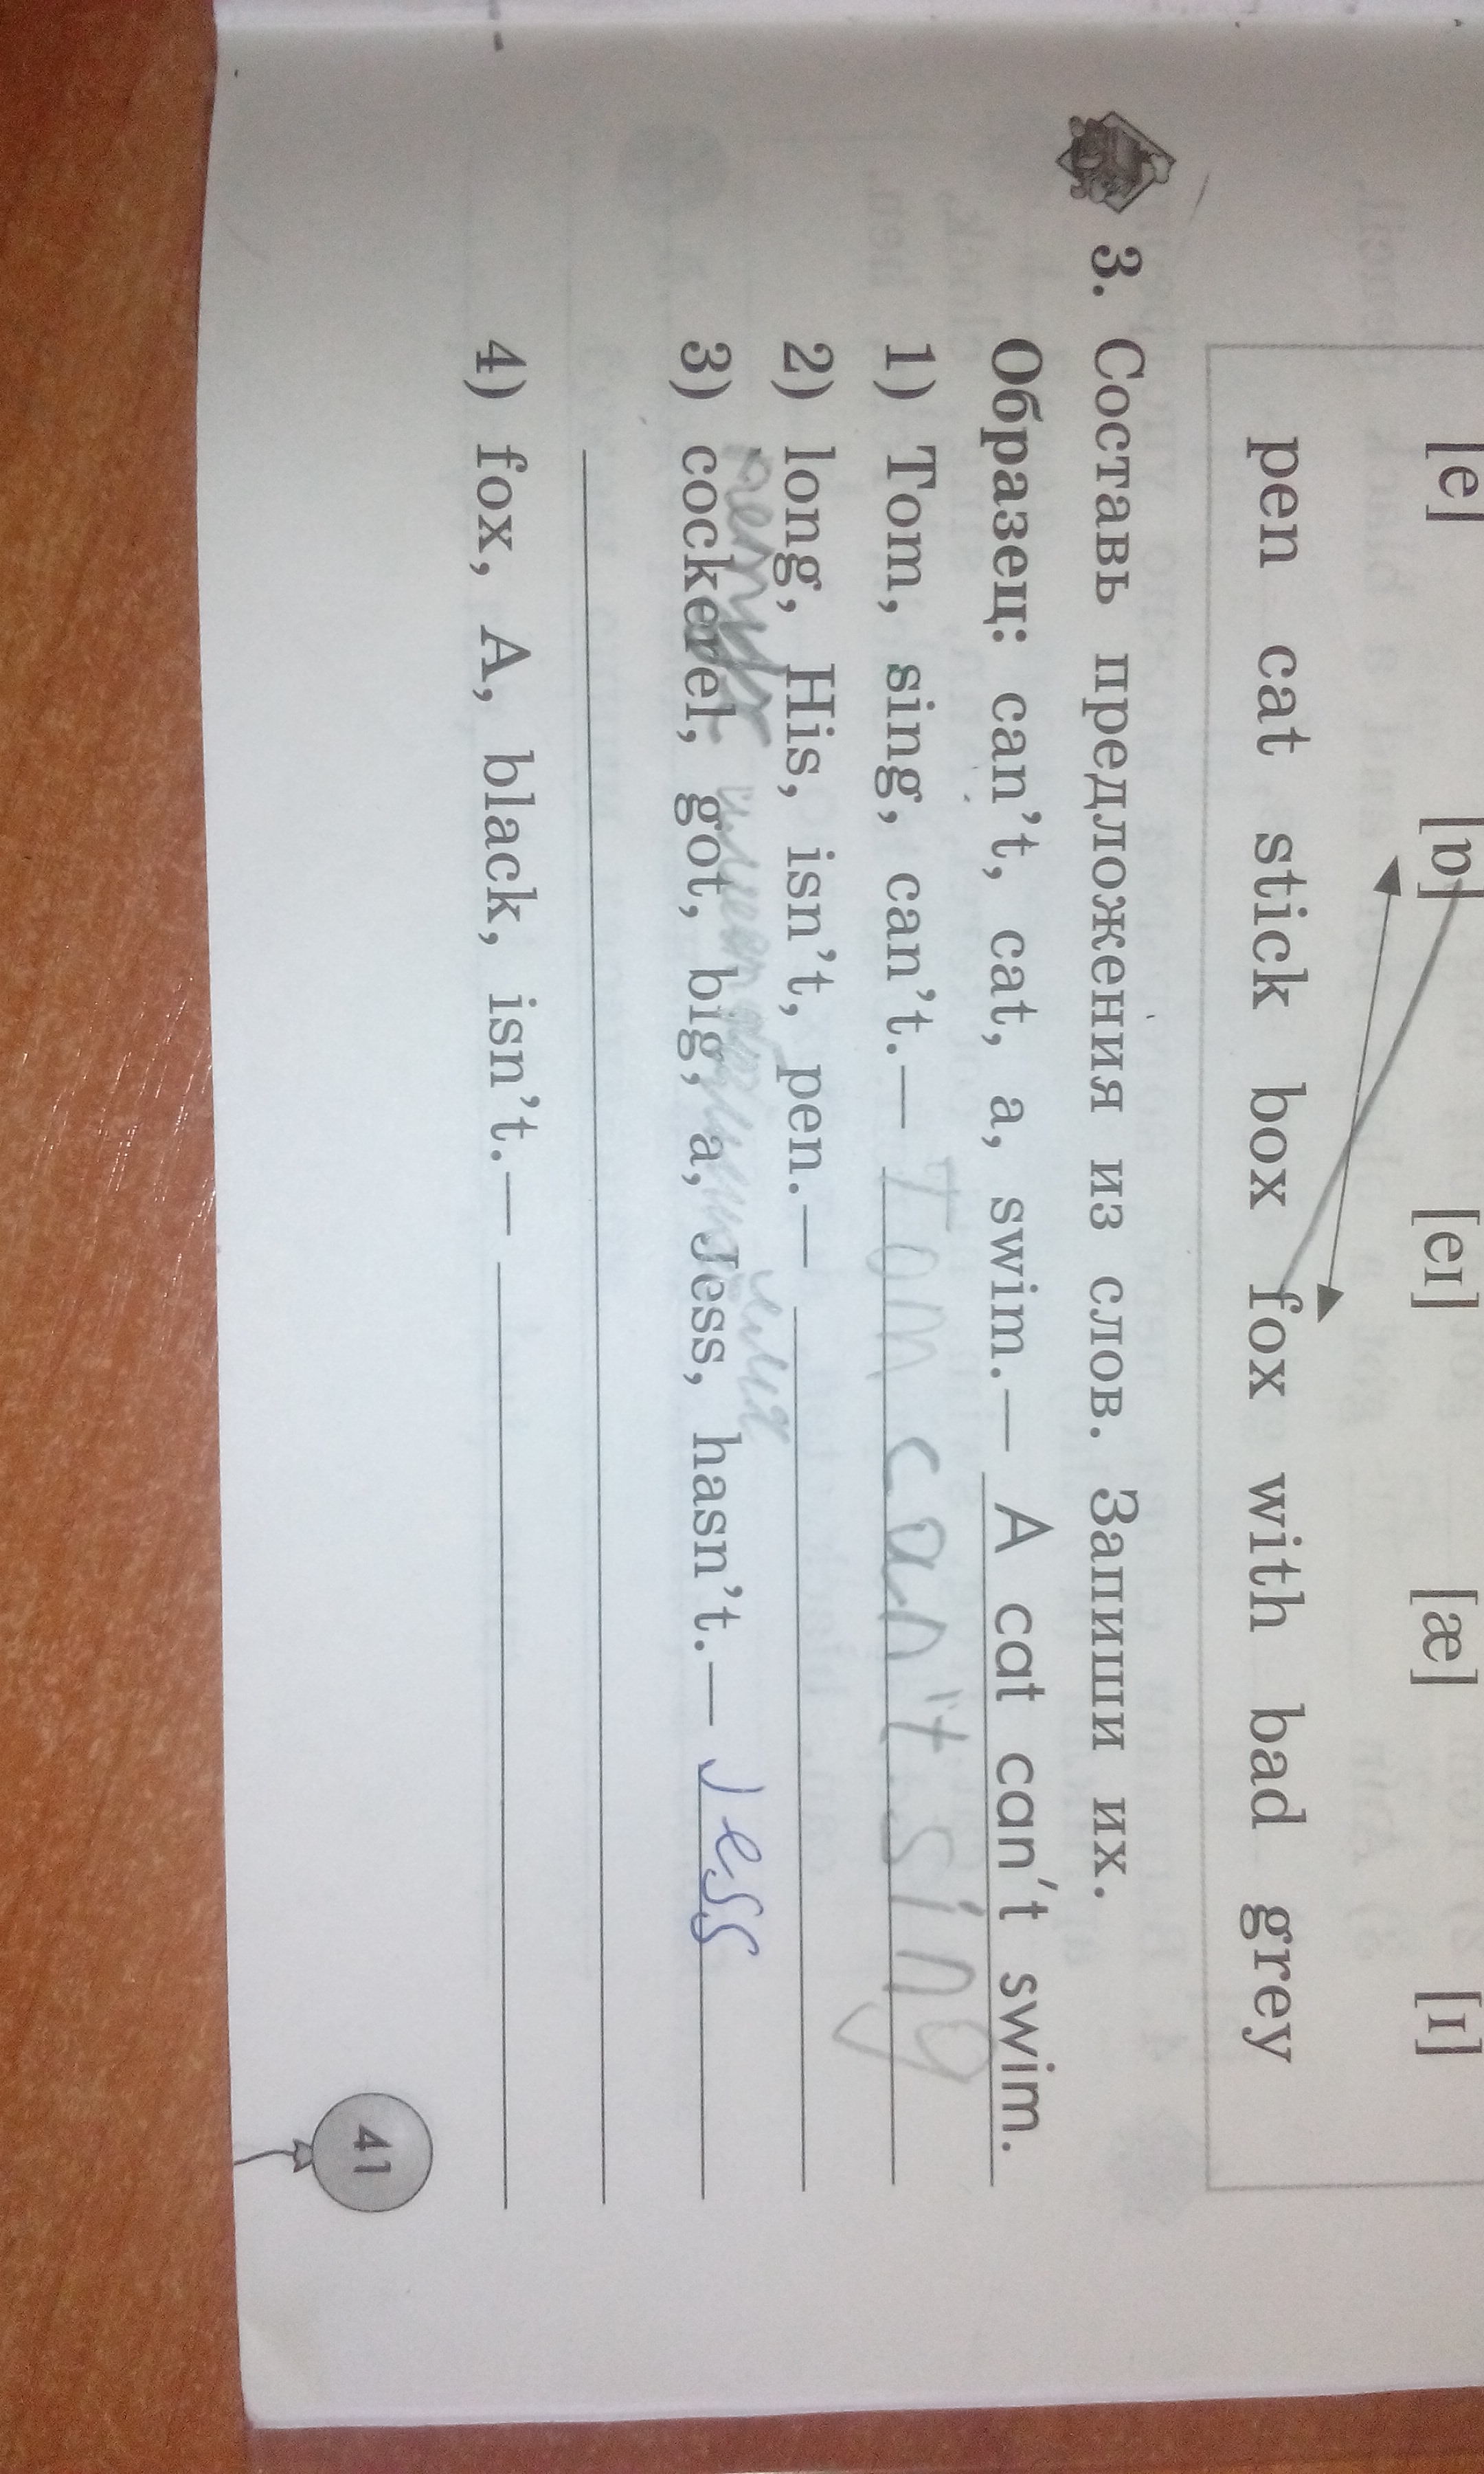 [e] [ɒ] [eɪ] [æ] [ɪ]
pen cat stick box fox with bad grey
3. Составь предложения из слов. Запиши их.
Образец: can't, cat, a, swim.— A cat can't swim.
1) Tom, sing, can't.— Tom can't sing
2) long, His, isn't, pen.—
3) cockerel, got, big, a, Jess, hasn't.— Jess
4) fox, A, black, isn't.—
41